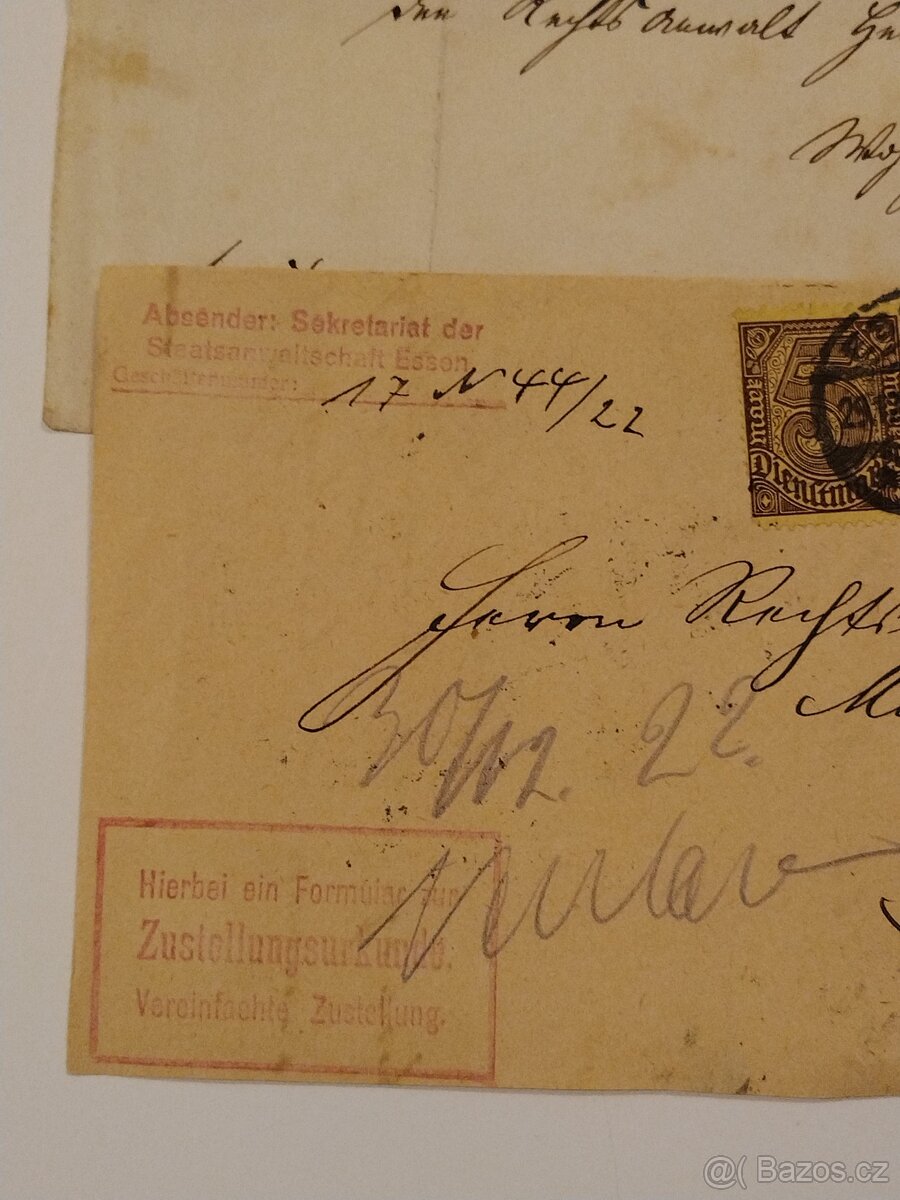 den Rechtsanwalt
Absender: Sekretariat der
Staatsanwaltschaft Essen
Geschäftsnummer:
17 N 44/22
5
Dienstmarke
Herrn Rechts
30/12. 22.
Hierbei ein Formular zur
Zustellungsurkunde.
Vereinfachte Zustellung.
@( Bazos.cz